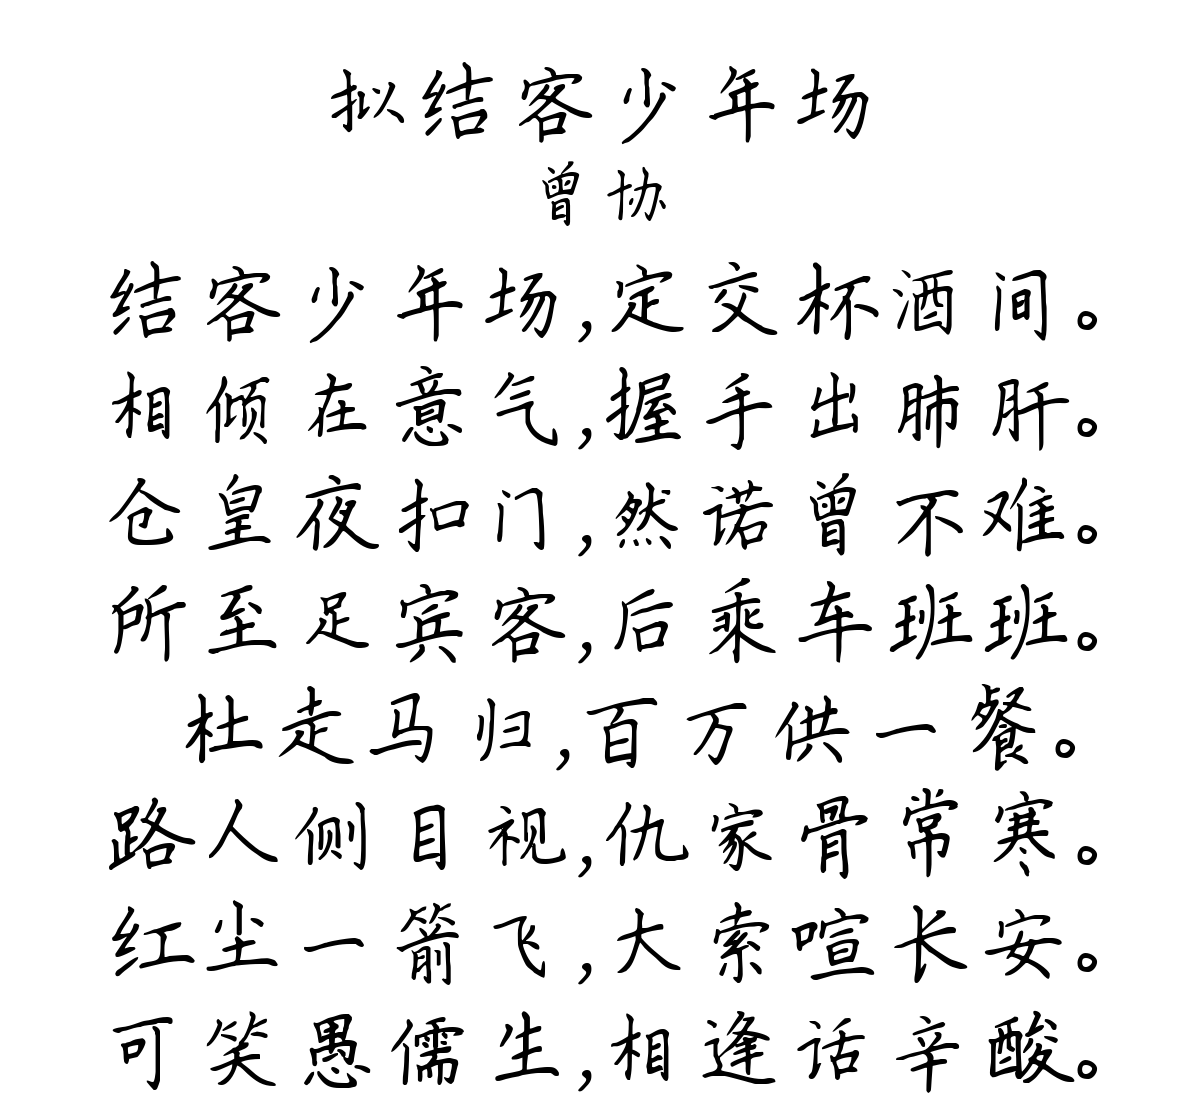 拟结客少年场
曾协
结客少年场,定交杯酒间。
相倾在意气,握手出肺肝。
仓皇夜扣门,然诺曾不难。
所至足宾客,后乘车班班。
杜走马归,百万供一餐。
路人侧目视,仇家骨常寒。
红尘一箭飞,大索喧长安。
可笑愚儒生,相逢话辛酸。